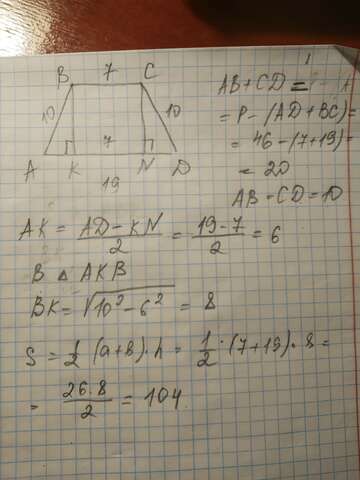 B 7 C
10 10
7
A K N D
19
AB + CD =
= P - (AD + BC) =
= 46 - (7 + 19) =
= 20
AB = CD = 10
AK = \frac{AD - KN}{2} = \frac{19 - 7}{2} = 6
В △ AKB
BK = \sqrt{10² - 6²} = 8
S = \frac{1}{2} (a + b) · h = \frac{1}{2} · (7 + 19) · 8 =
= \frac{26 · 8}{2} = 104